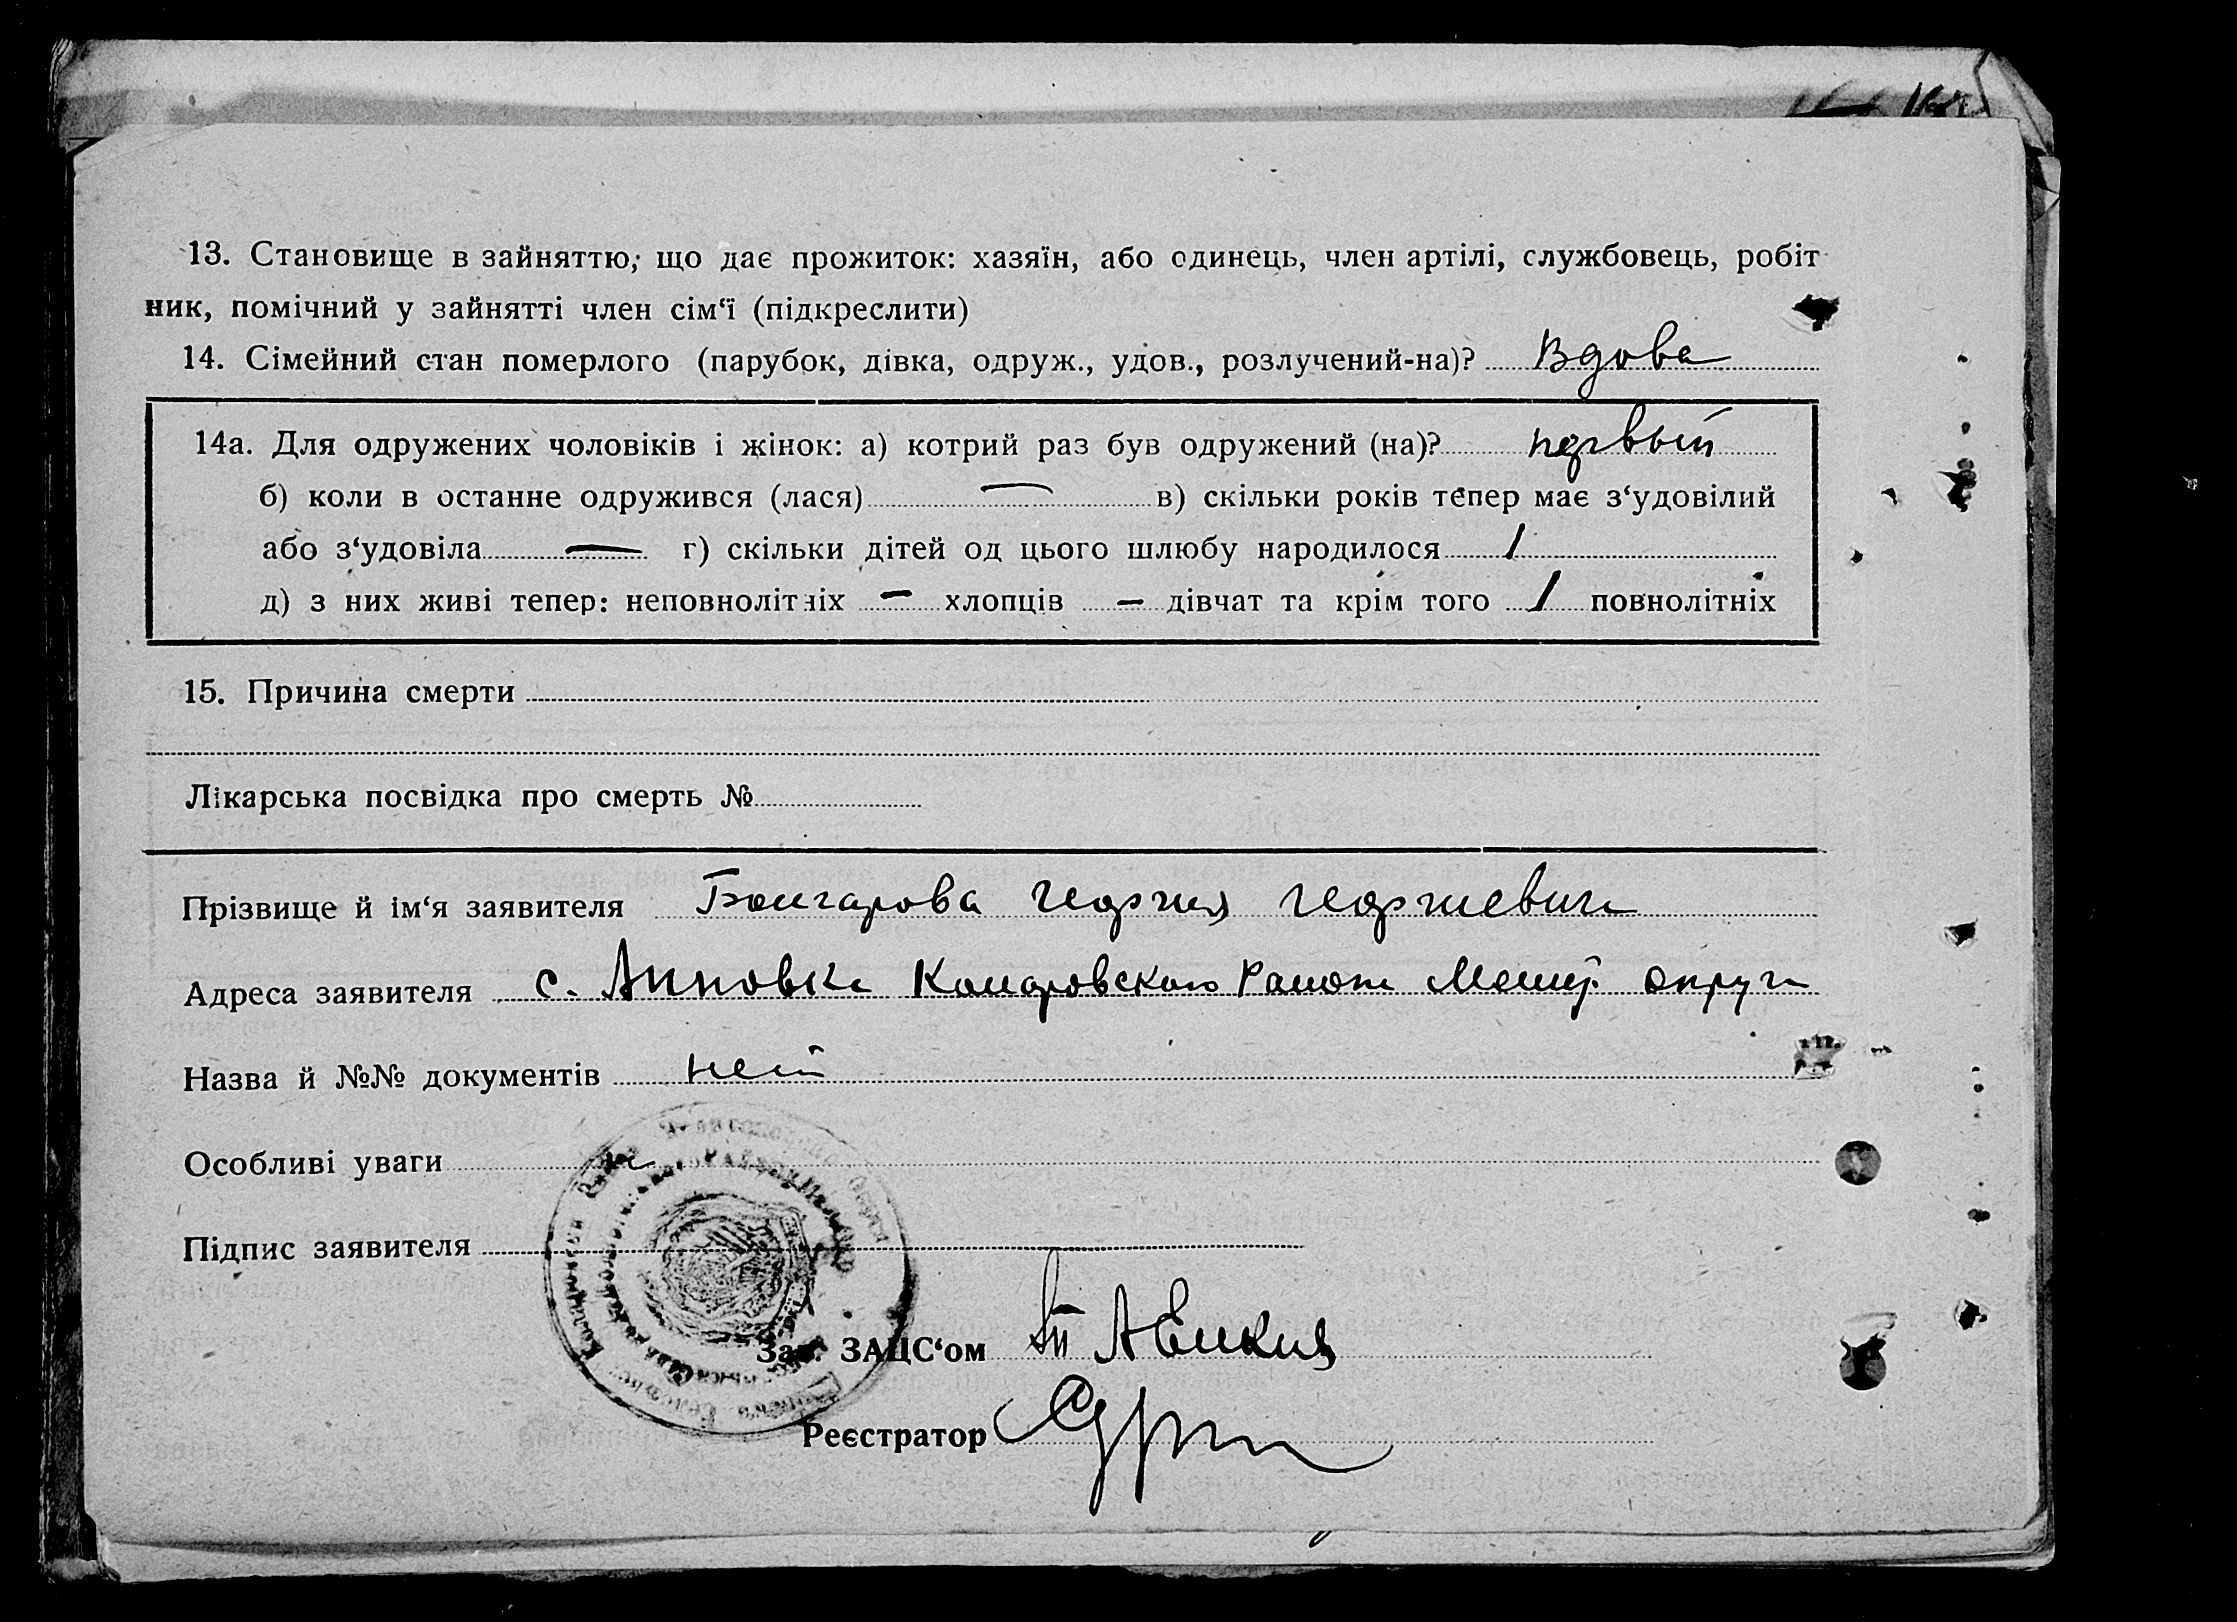 13. Становище в зайняттю, що дає прожиток: хазяїн, або одинець, член артілі, службовець, робіт
ник, помічний у зайнятті член сім‘ї (підкреслити)
14. Сімейний стан померлого (парубок, дівка, одруж., удов., розлучений-на)? Вдова
14а. Для одружених чоловіків і жінок: а) котрий раз був одружений (на)? первый
б) коли в останне одружився (лася) — в) скільки років тепер має з‘удовілий
або з‘удовіла — г) скільки дітей од цього шлюбу народилося 1
д) з них живі тепер: неповнолітніх — хлопців — дівчат та крім того 1 повнолітніх
15. Причина смерти
Лікарська посвідка про смерть №
Прізвище й ім‘я заявителя Бонгарова Георгия Георгиевич
Адреса заявителя с. Анновка Комаровского Района округи
Назва й №№ документів нет
Особливі уваги
Підпис заявителя
Зав. ЗАЦС‘ом
Реєстратор